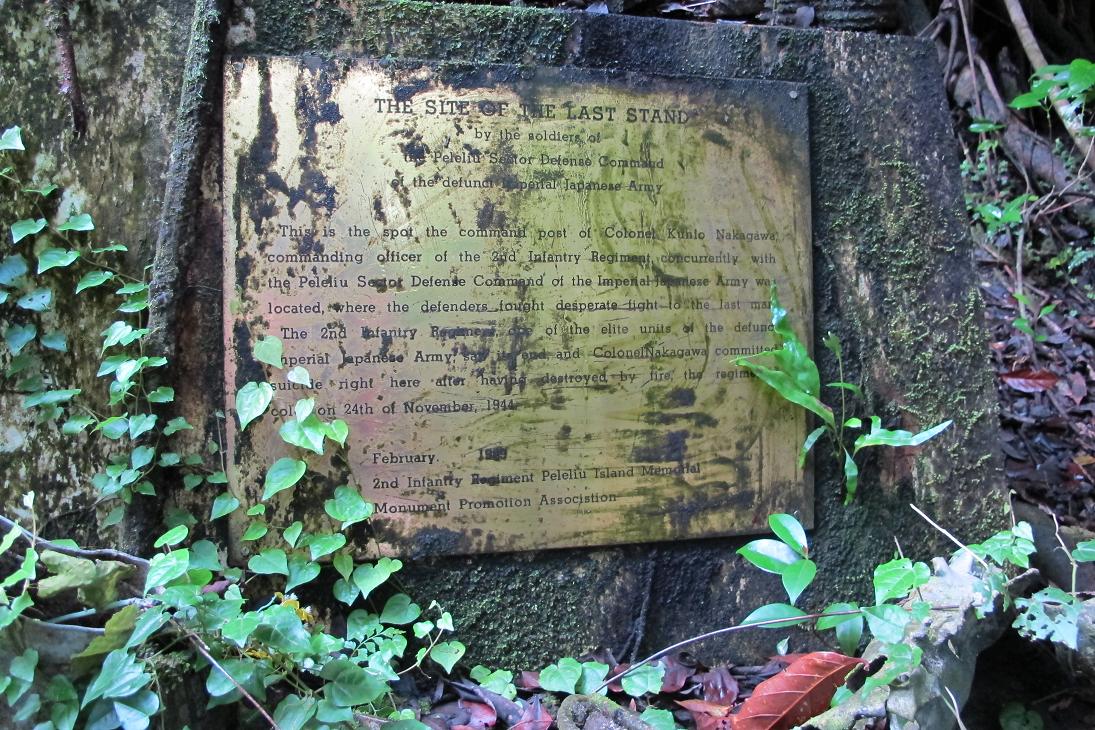 THE SITE OF THE LAST STAND
by the soldiers of
the Peleliu Sector Defense Command
of the defunct Imperial Japanese Army
This is the spot the command post of Colonel Kunio Nakagawa,
commanding officer of the 2nd Infantry Regiment concurrently with
the Peleliu Sector Defense Command of the Imperial Japanese Army was
located, where the defenders fought desperate fight to the last man.
The 2nd Infantry Regiment, one of the elite units of the defunct
Imperial Japanese Army, saw its end and ColonelNakagawa committed
suicide right here after having destroyed by fire, the regiment
colors on 24th of November, 1944.
February.
2nd Infantry Regiment Peleliu Island Memorial
Monument Promotion Association